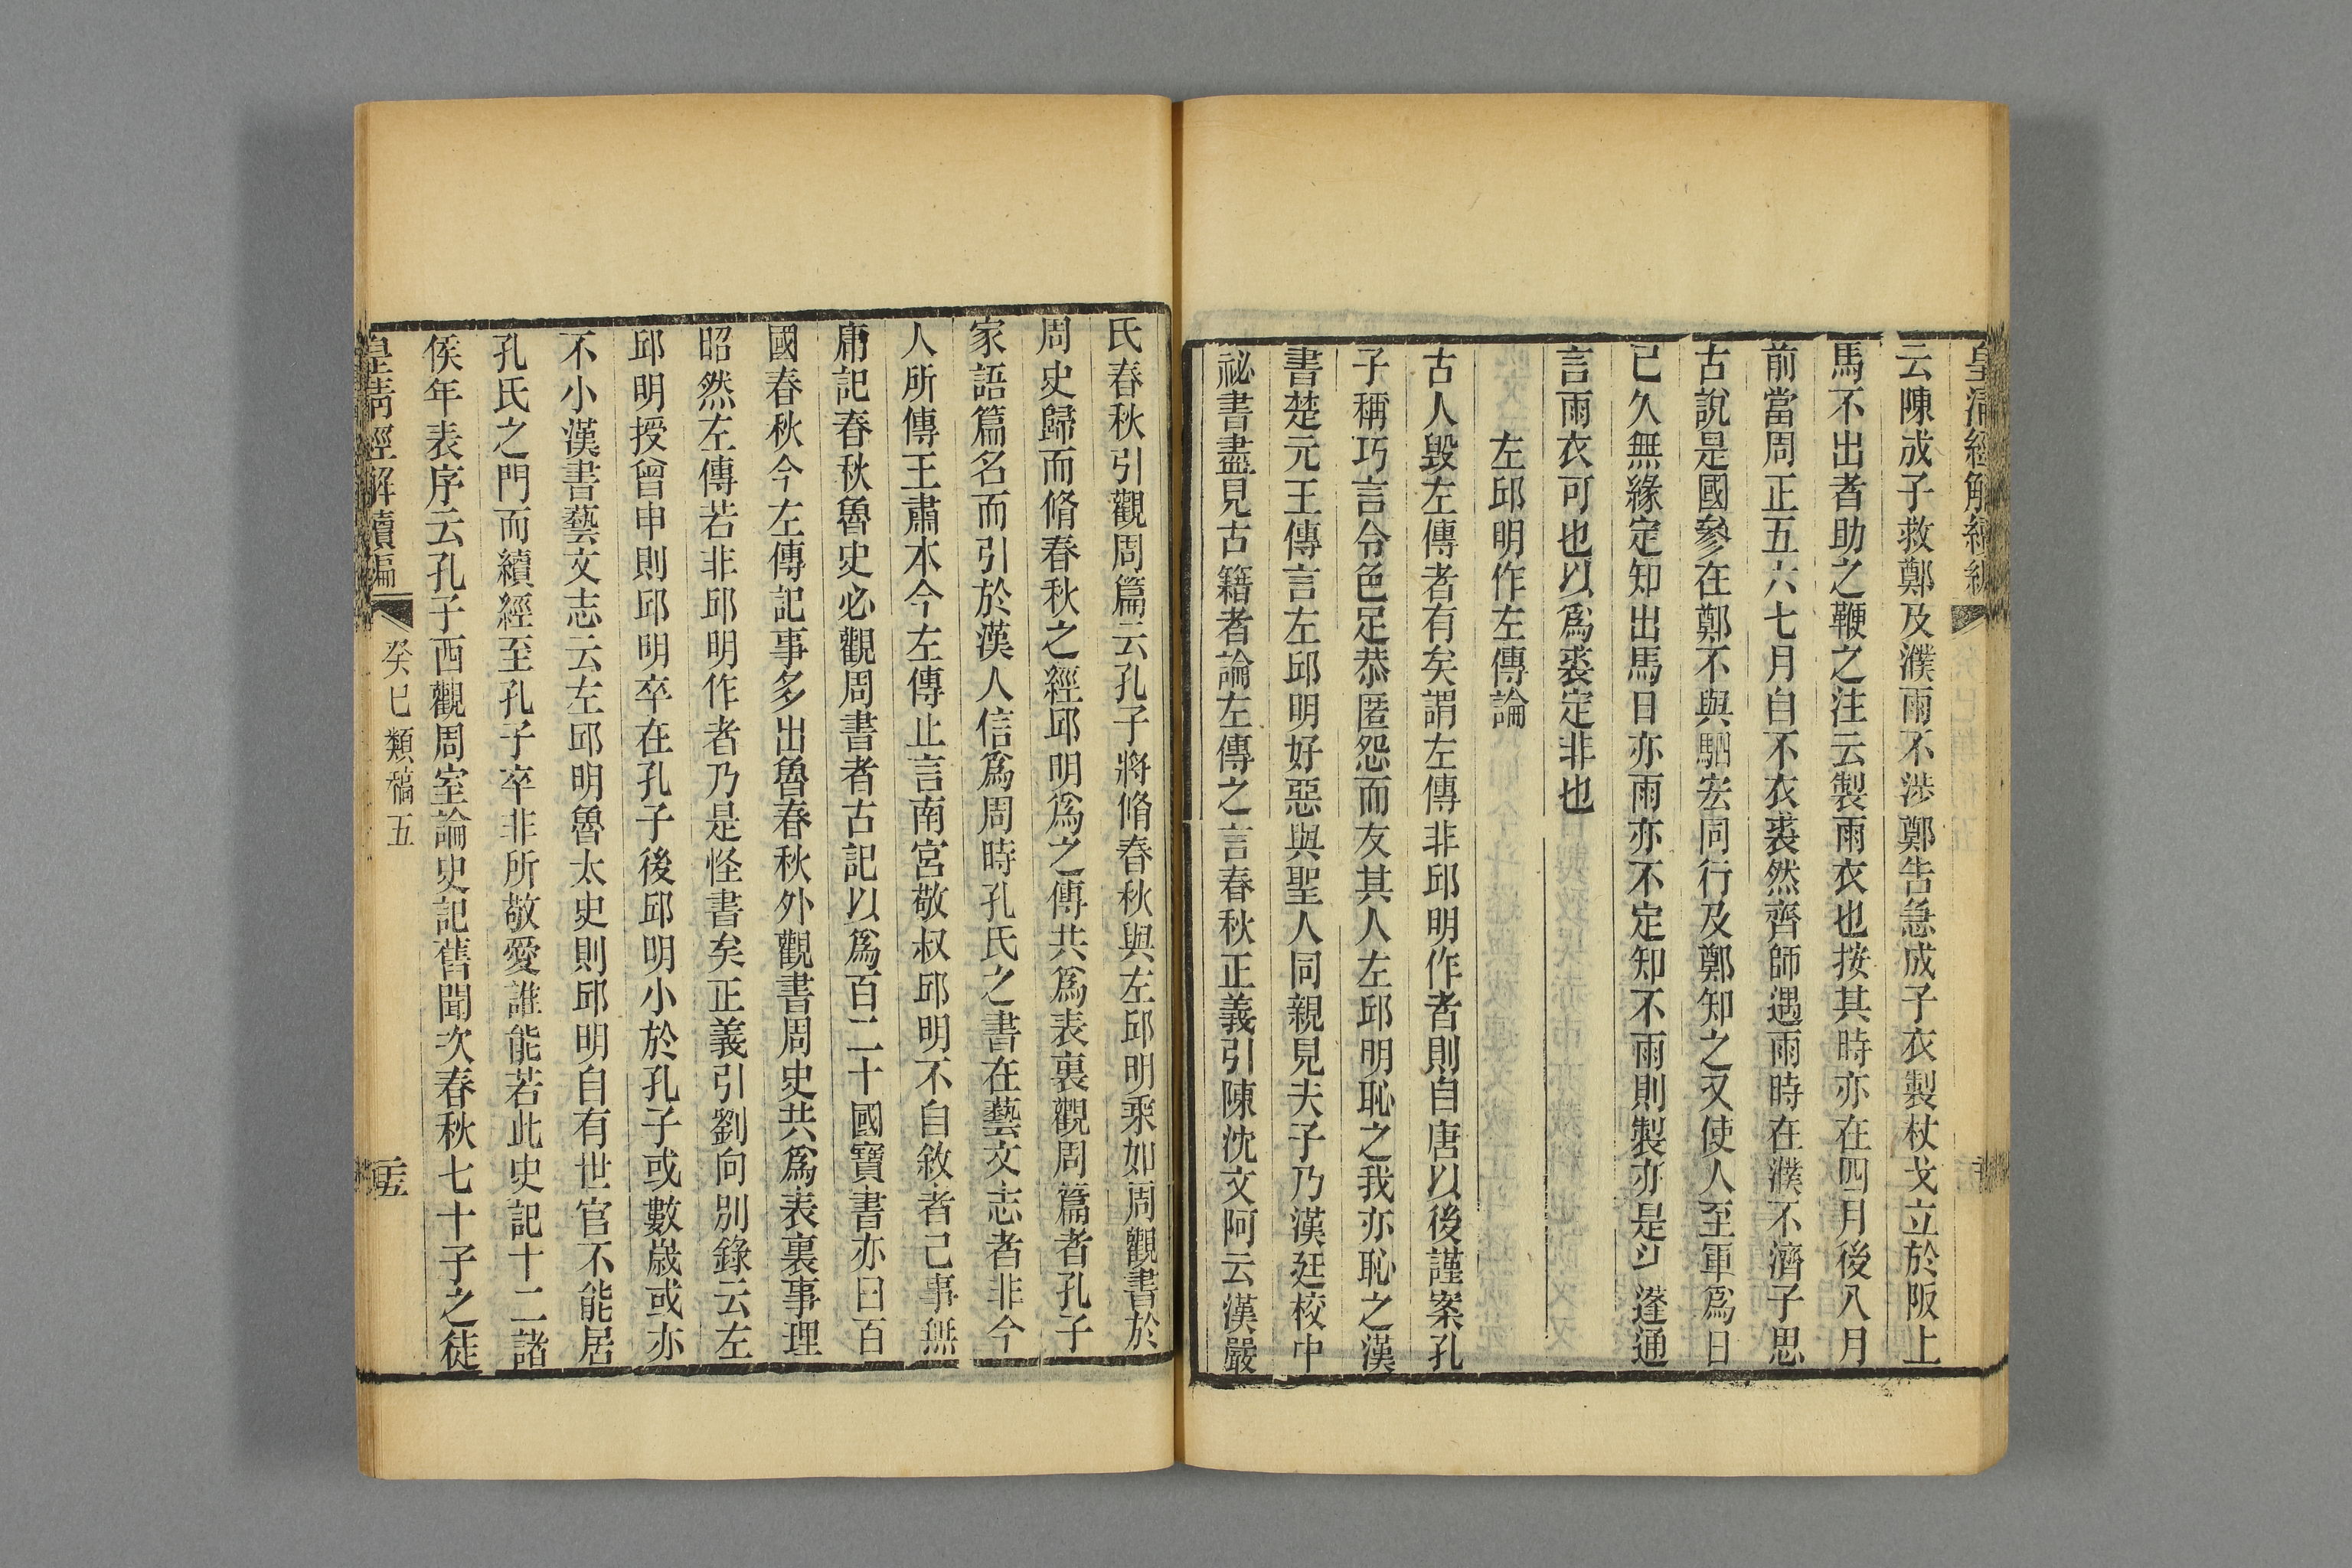 云陳成子救鄭及濮雨不涉鄭告急成子衣製杖戈立於阪上
馬不出者助之鞭之注云製雨衣也按其時亦在四月後八月
前當周正五六七月自不衣裘然齊師遇雨時在濮不濟子思
古說是國參在鄭不與駟宏同行及鄭知之又使人至軍爲日
已久無緣定知出馬日亦雨亦不定知不雨則製亦是 蓬通
言雨衣可也以爲裘定非也
左邱明作左傳論
古人毀左傳者有矣謂左傳非邱明作者則自唐以後謹案孔
子稱巧言令色足恭匿怨而友其人左邱明恥之我亦恥之漢
書楚元王傳言左邱明好惡與聖人同親見夫子乃漢廷校中
祕書盡見古籍者論左傳之言春秋正義引陳沈文阿云漢嚴
氏春秋引觀周篇云孔子將脩春秋與左邱明乘如周觀書於
周史歸而脩春秋之經邱明爲之傳共爲表裏觀周篇者孔子
家語篇名而引於漢人信爲周時孔氏之書在藝文志者非今
人所傳王肅本今左傳止言南宮敬叔邱明不自敘者己事無
庸記春秋魯史必觀周書者古記以爲百二十國寶書亦曰百
國春秋今左傳記事多出魯春秋外觀書周史共爲表裏事理
昭然左傳若非邱明作者乃是怪書矣正義引劉向別錄云左
邱明授曾申則邱明卒在孔子後邱明小於孔子或數歲或亦
不小漢書藝文志云左邱明魯太史則邱明自有世官不能居
孔氏之門而續經至孔子卒非所敬愛誰能若此史記十二諸
侯年表序云孔子西觀周室論史記舊聞次春秋七十子之徒
皇清經解續編
癸巳類稿五